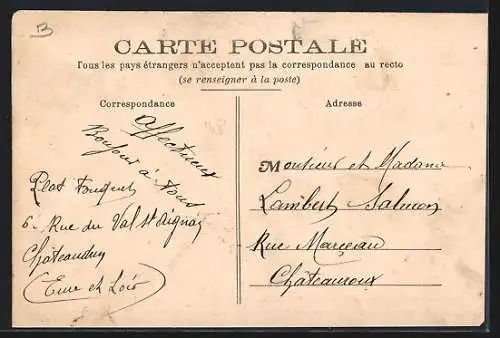 B
CARTE POSTALE
Tous les pays étrangers n'acceptent pas la correspondance au recto
(se renseigner à la poste)
Correspondance
Affectueux
Bonjour à tous
6. Rue du Val St Aignan
Châteaudun
(Eure et Loir)
Adresse
Monsieur et Madame
Lambert Salmon
Rue Marceau
Châteauroux